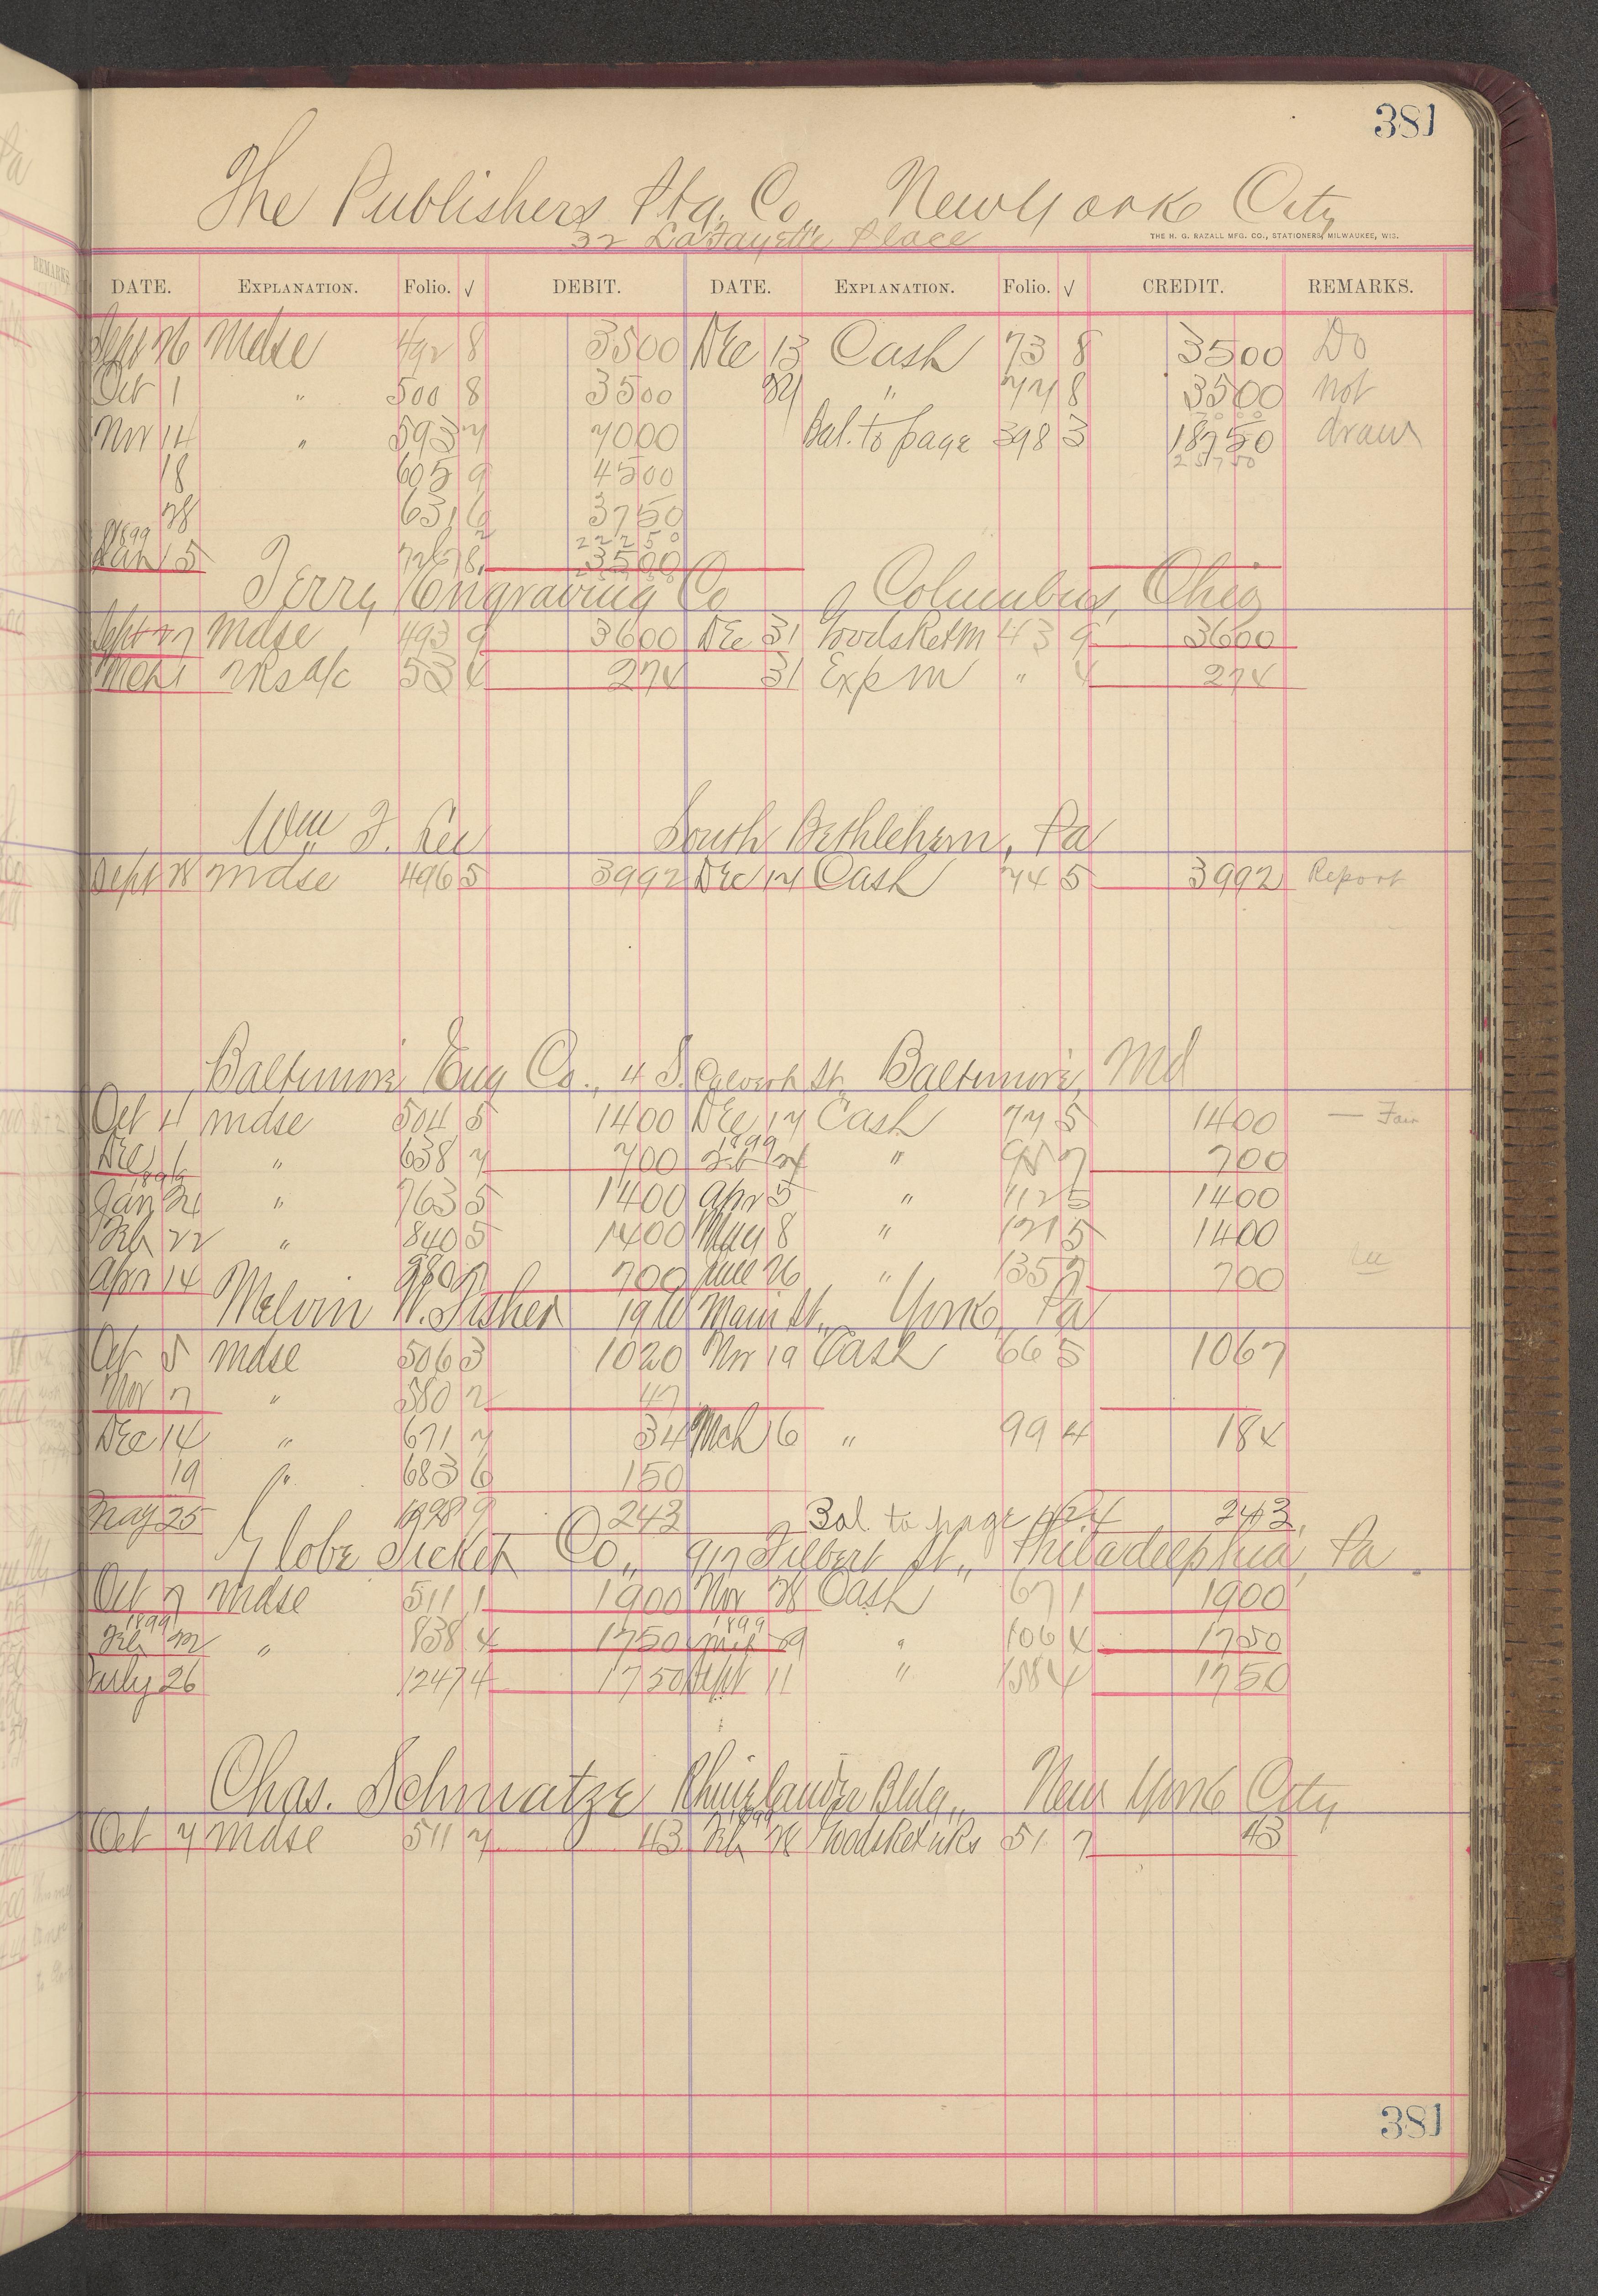 381
The Publishers Ptg. Co., New York City
32 LaFayette Place
THE H. G. RAZALL MFG. CO., STATIONERS, MILWAUKEE, WIS.
DATE. EXPLANATION. Folio. √ DEBIT. DATE. EXPLANATION. Folio. √ CREDIT. REMARKS.
Sept 26 Mdse 492 8 3500 Dec 13 Cash 73 8 3500 Do
Oct 1 " 500 8 3500 " 77 8 3500 not
Nov 14 " 593 7 7000 Bal. to page 398 3 18750 draw
18 605 9 4500 25750
28 631 6 3750
1899 22250
Jan 5 8 3500
Terry Engraving Co Columbus, Ohio
Sept 27 Mdse 493 9 3600 Dec 31 GoodsRetM 43 9 3600
Mch 1 a/c 53 4 274 31 Exp M " 4 274
Wm F. Lee South Bethlehem, Pa
Sept 28 Mdse 496 5 3992 Dec 14 Cash 74 5 3992 Report
Baltimore Eng Co., 4 S. Calvert St., Baltimore, Md
Oct 4 Mdse 504 5 1400 Dec 17 Cash 77 5 1400 — Fair
Dec 1 " 638 7 700 1899 Feb 24 " 7 700
Jan 21 " 763 5 1400 Apr 5 " 112 5 1400
Feb 22 " 840 5 1400 May 8 " 121 5 1400
Apr 14 980 7 700 June 26 " 135 7 700
Melvin W. Fisher 19 W Main St., York, Pa
Oct 5 Mdse 506 3 1020 Nov 19 Cash 66 5 1067
Nov 7 " 580 2 47
Dec 14 " 671 7 34 Mch 6 " 99 4 184
19 " 683 6 150
May 25 9 243 Bal. to page 243
Globe Ticket Co., 917 Filbert St., Philadelphia, Pa.
Oct 7 Mdse 511 1 1900 Nov 28 Cash 67 1 1900
1899 1899
Feb " 838 4 1750 29 " 106 4 1750
July 26 1247 4 1750 Sept 11 " 158 4 1750
Chas. Schwatze Rhinelander Bldg., New York City
Oct 7 Mdse 511 7 43 Feb 28 51 7 43
381